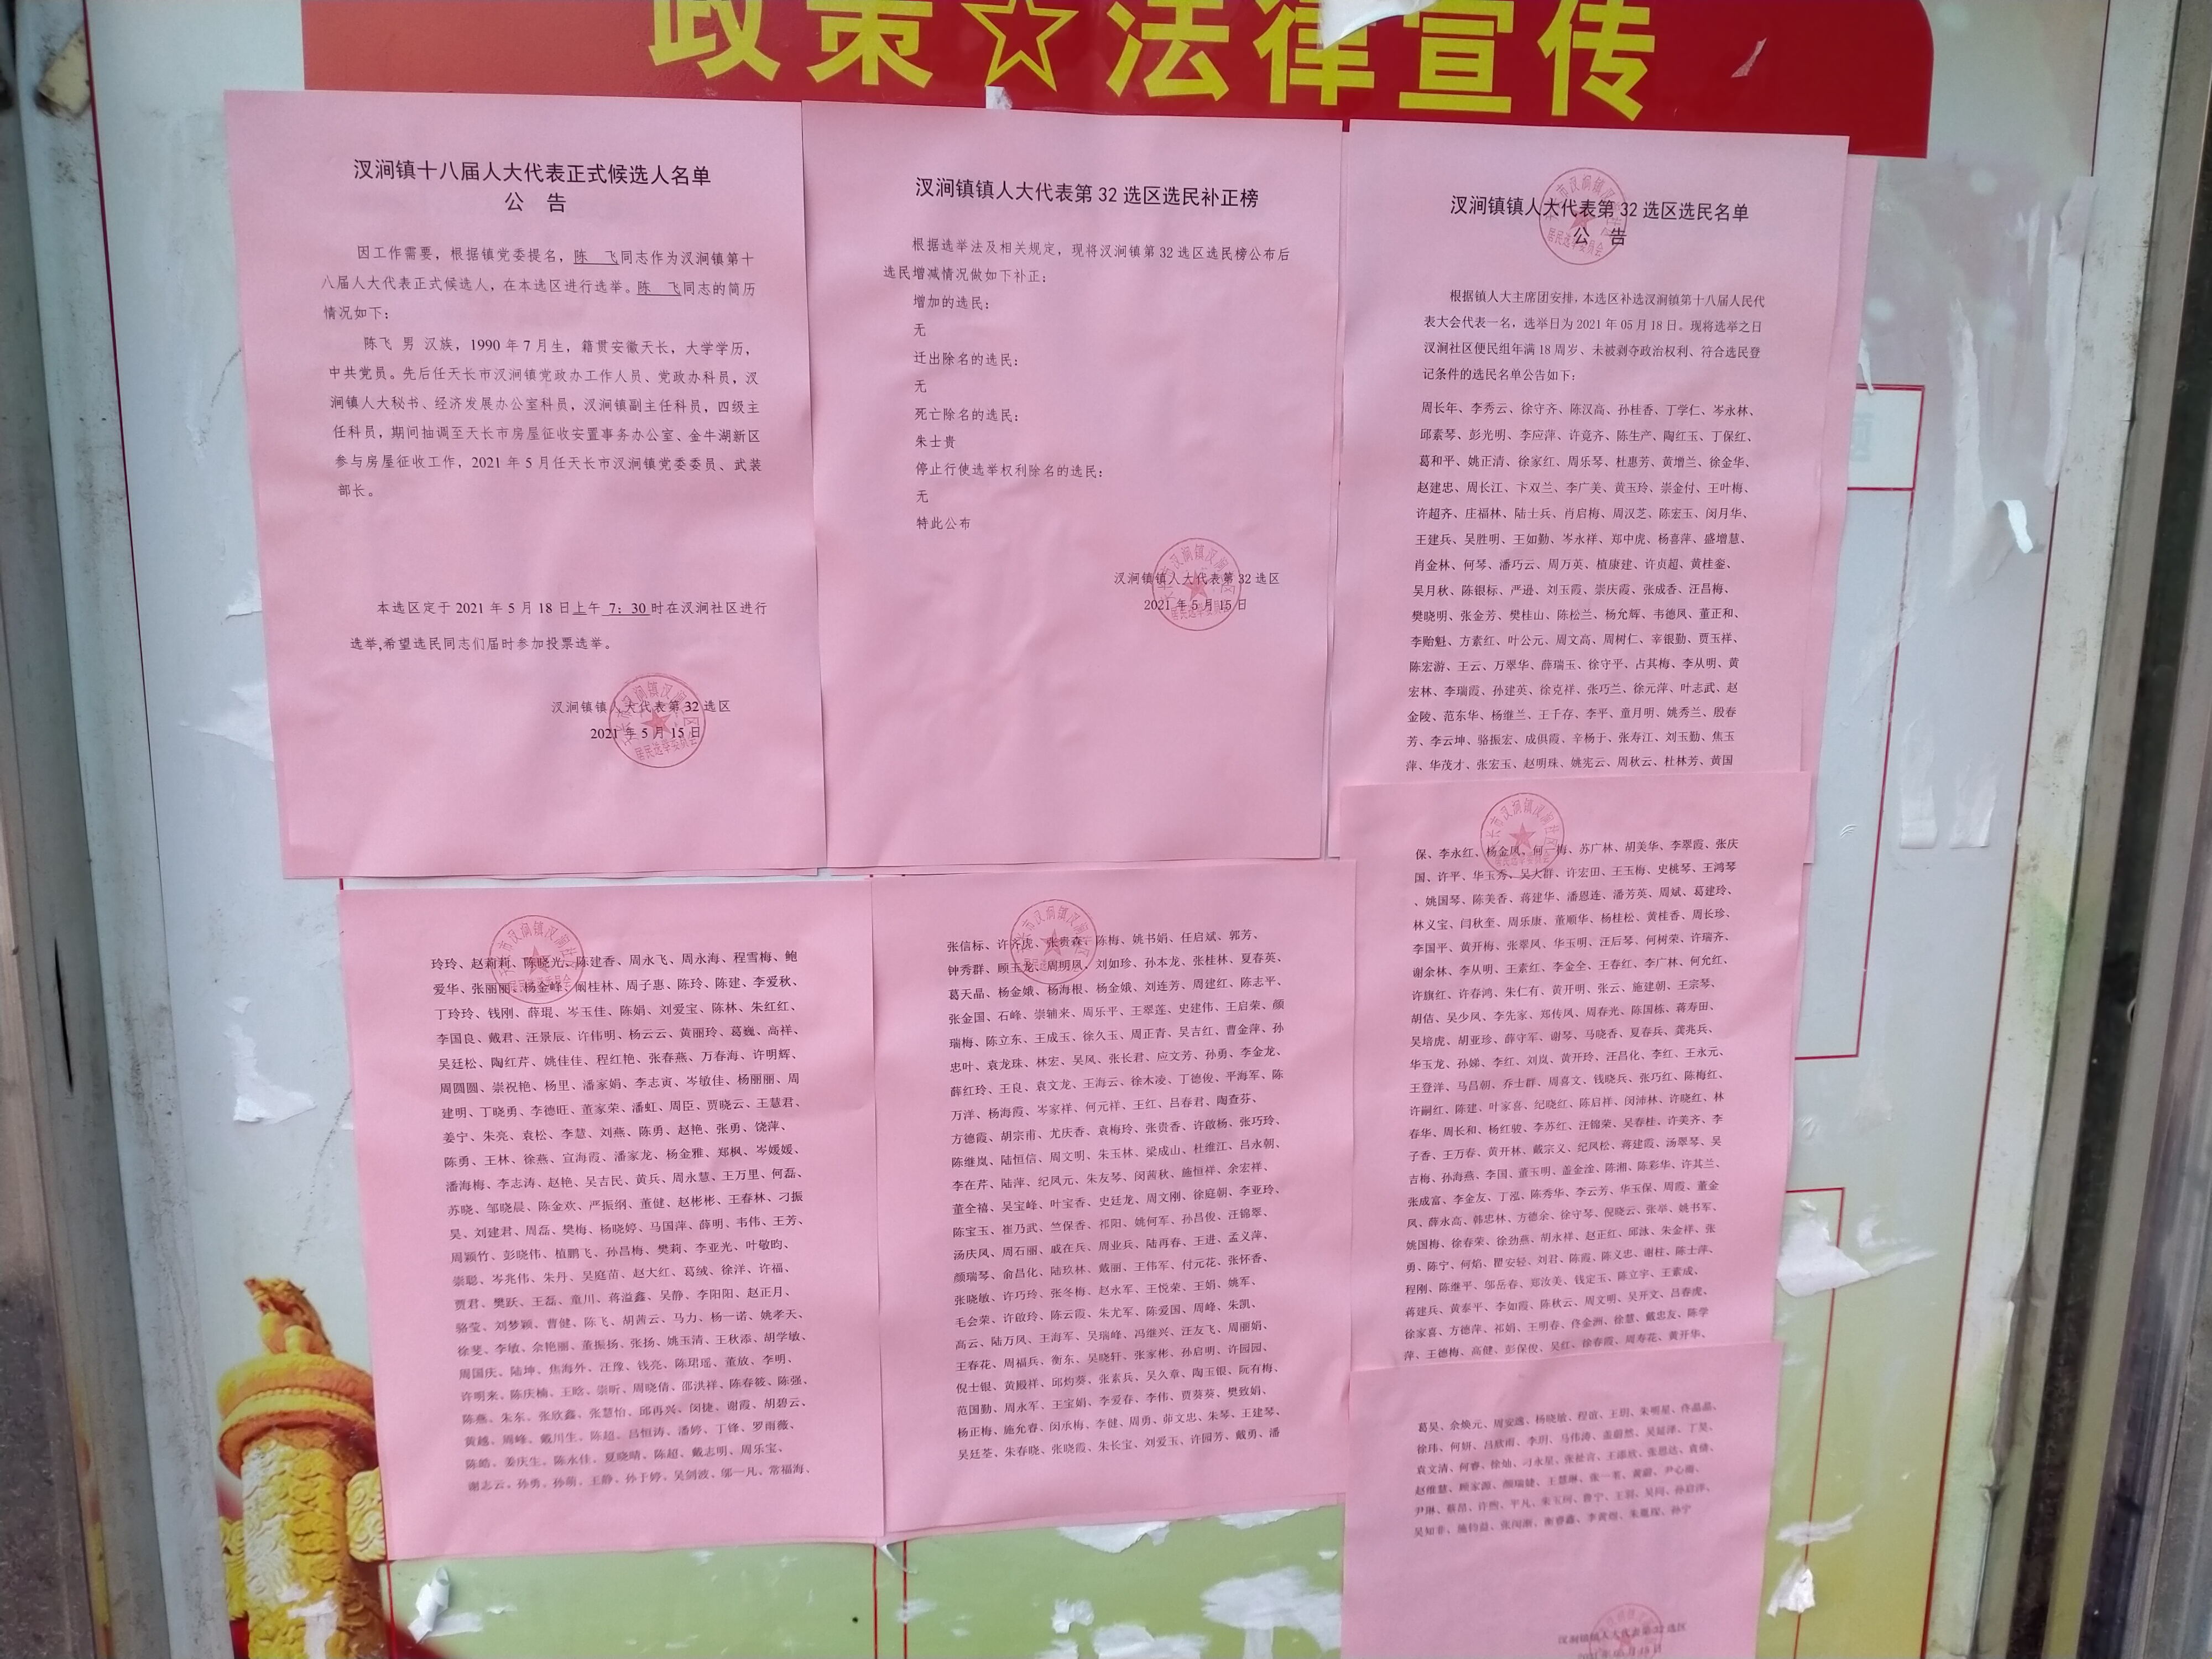 政策☆法律宣传
汊涧镇十八届人大代表正式候选人名单
公 告
因工作需要，根据镇党委提名，陈 飞同志作为汊涧镇第十
八届人大代表正式候选人，在本选区进行选举。陈 飞同志的简历
情况如下：
陈飞 男 汉族，1990 年 7 月生，籍贯安徽天长，大学学历，
中共党员。先后任天长市汊涧镇党政办工作人员、党政办科员，汊
涧镇人大秘书、经济发展办公室科员，汊涧镇副主任科员，四级主
任科员，期间抽调至天长市房屋征收安置事务办公室、金牛湖新区
参与房屋征收工作，2021 年 5 月任天长市汊涧镇党委委员、武装
部长。
本选区定于 2021 年 5 月 18 日上午 7：30 时在汊涧社区进行
选举,希望选民同志们届时参加投票选举。
汊涧镇镇人大代表第 32 选区
2021 年 5 月 15 日
汊涧镇镇人大代表第 32 选区选民补正榜
根据选举法及相关规定，现将汊涧镇第 32 选区选民榜公布后
选民增减情况做如下补正：
增加的选民：
无
迁出除名的选民：
无
死亡除名的选民：
朱士贵
停止行使选举权利除名的选民：
无
特此公布
汊涧镇镇人大代表第 32 选区
2021 年 5 月 15 日
汊涧镇镇人大代表第 32 选区选民名单
公 告
根据镇人大主席团安排，本选区补选汊涧镇第十八届人民代
表大会代表一名，选举日为 2021 年 05 月 18 日。现将选举之日
汊涧社区便民组年满 18 周岁、未被剥夺政治权利、符合选民登
记条件的选民名单公告如下：
周长年、李秀云、徐守齐、陈汉高、孙桂香、丁学仁、岑永林、
邱素琴、彭光明、李应萍、许竟齐、陈生产、陶红玉、丁保红、
葛和平、姚正清、徐家红、周乐琴、杜惠芳、黄增兰、徐金华、
赵建忠、周长江、卞双兰、李广美、黄玉玲、崇金付、王叶梅、
许超齐、庄福林、陆士兵、肖启梅、周汉芝、陈宏玉、闵月华、
王建兵、吴胜明、王如勤、岑永祥、郑中虎、杨喜萍、盛增慧、
肖金林、何琴、潘巧云、周万英、植康建、许贞超、黄桂銮、
吴月秋、陈银标、严逊、刘玉霞、崇庆霞、张成香、汪昌梅、
樊晓明、张金芳、樊桂山、陈松兰、杨允辉、韦德凤、董正和、
李贻魁、方素红、叶公元、周文高、周树仁、宰银勤、贾玉祥、
陈宏游、王云、万翠华、薛瑞玉、徐守平、占其梅、李从明、黄
宏林、李瑞霞、孙建英、徐克祥、张巧兰、徐元萍、叶志武、赵
金陵、范东华、杨继兰、王千存、李平、童月明、姚秀兰、殷春
芳、李云坤、骆振宏、成俱霞、辛杨于、张寿江、刘玉勤、焦玉
萍、华茂才、张宏玉、赵明珠、姚宪云、周秋云、杜林芳、黄国
保、李永红、杨金凤、何 梅、苏广林、胡美华、李翠霞、张庆
国、许平、华玉秀、吴大群、许宏田、王玉梅、史桃琴、王鸿琴
、姚国琴、陈美香、蒋建华、潘恩连、潘芳英、周斌、葛建玲、
林义宝、闫秋奎、周乐康、董顺华、杨桂松、黄桂香、周长珍、
李国平、黄开梅、张翠凤、华玉明、汪后琴、何树荣、许瑞齐、
谢余林、李从明、王素红、李金全、王春红、李广林、何允红、
许旗红、许春鸿、朱仁有、黄开明、张云、施建朝、王宗琴、
胡佶、吴少凤、李先家、郑传凤、周春光、陈国栋、蒋寿田、
吴培虎、胡亚珍、薛守军、谢琴、马晓香、夏春兵、龚兆兵、
华玉龙、孙娣、李红、刘岚、黄开玲、汪昌化、李红、王永元、
王登洋、马昌朝、乔士群、周喜文、钱晓兵、张巧红、陈梅红、
许嗣红、陈建、叶家喜、纪晓红、陈启祥、闵沛林、许晓红、林
春华、周长和、杨红骏、李苏红、汪锦荣、吴春桂、许美齐、李
子香、王万春、黄开林、戴宗义、纪凤松、蒋建霞、汤翠琴、吴
吉梅、孙海燕、李国、董玉明、盖金淦、陈湘、陈彩华、许其兰、
张成富、李金友、丁泓、陈秀华、李云芳、华玉保、周霞、董金
凤、薛永高、韩忠林、方德余、徐守琴、倪晓云、张举、姚书军、
姚国梅、徐春荣、徐劲燕、胡永祥、赵正红、邱泳、朱金祥、张
勇、陈宁、何焰、瞿安轻、刘君、陈霞、陈义忠、谢柱、陈士萍、
程刚、陈继平、邬岳春、郑汝美、钱定玉、陈立宇、王素成、
蒋建兵、黄泰平、李如霞、陈秋云、周文明、吴开文、吕春虎、
徐家喜、方德萍、祁娟、王明春、佟金洲、徐慧、戴忠友、陈学
萍、王德梅、高健、彭保俊、吴红、徐春霞、周寿花、黄开华、
玲玲、赵莉莉、陈晓光、陈建香、周永飞、周永海、程雪梅、鲍
爱华、张丽丽、杨金峰、阚桂林、周子惠、陈玲、陈建、李爱秋、
丁玲玲、钱刚、薛琨、岑玉佳、陈娟、刘爱宝、陈林、朱红红、
李国良、戴君、汪景辰、许伟明、杨云云、黄丽玲、葛巍、高祥、
吴廷松、陶红芹、姚佳佳、程红艳、张春燕、万春海、许明辉、
周圆圆、崇祝艳、杨里、潘家娟、李志寅、岑敏佳、杨丽丽、周
建明、丁晓勇、李德旺、董家荣、潘虹、周臣、贾晓云、王慧君、
姜宁、朱亮、袁松、李慧、刘燕、陈勇、赵艳、张勇、饶萍、
陈勇、王林、徐燕、宣海霞、潘家龙、杨金雅、郑枫、岑媛媛、
潘海梅、李志涛、赵艳、吴吉民、黄兵、周永慧、王万里、何磊、
苏晓、邹晓晨、陈金欢、严振纲、董健、赵彬彬、王春林、刁振
昊、刘建君、周磊、樊梅、杨晓婷、马国萍、薛明、韦伟、王芳、
周颖竹、彭晓伟、植鹏飞、孙昌梅、樊莉、李亚光、叶敬昀、
崇聪、岑兆伟、朱丹、吴庭苗、赵大红、葛绒、徐洋、许福、
贾君、樊跃、王磊、童川、蒋溢鑫、吴静、李阳阳、赵正月、
骆莹、刘梦颖、曹健、陈飞、胡茜云、马力、杨一诺、姚孝天、
徐斐、李敏、佘艳丽、董振扬、张扬、姚玉清、王秋添、胡学敏、
周国庆、陆坤、焦海外、汪豫、钱亮、陈珺瑶、董放、李明、
许明来、陈庆楠、王晗、崇昕、周晓倩、邵洪祥、陈春筱、陈强、
陈燕、朱东、张欣鑫、张慧怡、邱再兴、闵捷、谢霞、胡碧云、
黄越、周峰、戴川生、陈超、吕恒涛、潘婷、丁锋、罗雨薇、
陈皓、姜庆生、陈永佳、夏晓晴、陈超、戴志明、周乐宝、
谢志云、孙勇、孙萌、王静、孙于婷、吴剑波、邬一凡、常福海、
张信标、许齐虎、张贵森、陈梅、姚书娟、任启斌、郭芳、
钟秀群、顾玉龙、周明凤、刘如珍、孙本龙、张桂林、夏春英、
葛天晶、杨金娥、杨海根、杨金娥、刘连芳、周建红、陈志平、
张金国、石峰、崇辅来、周乐平、王翠莲、史建伟、王启荣、颜
瑞梅、陈立东、王成玉、徐久玉、周正青、吴吉红、曹金萍、孙
忠叶、袁龙珠、林宏、吴凤、张长君、应文芳、孙勇、李金龙、
薛红玲、王良、袁文龙、王海云、徐木凌、丁德俊、平海军、陈
万洋、杨海霞、岑家祥、何元祥、王红、吕春君、陶查芬、
方德霞、胡宗甫、尤庆香、袁梅玲、张贵香、许啟杨、张巧玲、
陈继岚、陆恒信、周文明、朱玉林、梁成山、杜维江、吕永朝、
李在芹、陆萍、纪凤元、朱友琴、闵茜秋、施恒祥、余宏祥、
董全禧、吴宝峰、叶宝香、史廷龙、周文刚、徐庭朝、李亚玲、
陈宝玉、崔乃武、竺保香、祁阳、姚何军、孙昌俊、汪锦翠、
汤庆凤、周石丽、戚在兵、周业兵、陆再春、王进、孟义萍、
颜瑞琴、俞昌化、陆玖林、戴丽、王伟军、付元花、张怀香、
张晓敏、许巧玲、张冬梅、赵永军、王悦荣、王娟、姚军、
毛会荣、许啟玲、陈云霞、朱尤军、陈爱国、周峰、朱凯、
高云、陆万凤、王海军、吴瑞峰、冯继兴、汪友飞、周丽娟、
王春花、周福兵、衡东、吴晓轩、张家彬、孙启明、许园园、
倪士银、黄殿祥、邱灼葵、张素兵、吴久章、陶玉银、阮有梅、
范国勤、周永军、王宝娟、李爱春、李伟、贾葵葵、樊致娟、
杨正梅、施允睿、闵承梅、李健、周勇、茆文忠、朱琴、王建琴、
吴廷荃、朱春晓、张晓霞、朱长宝、刘爱玉、许园芳、戴勇、潘
汊涧镇镇人大代表第 32 选区